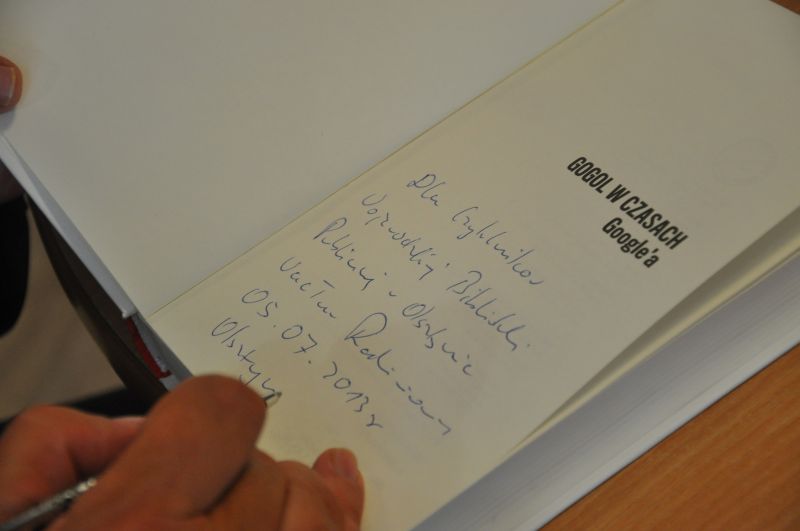 GOGOL W CZASACH
Google'a
Dla Czytelników
Wojewódzkiej Biblioteki
Publicznej w Olsztynie
Wacław Radziwinowicz
05.07.2013r
Olsztyn